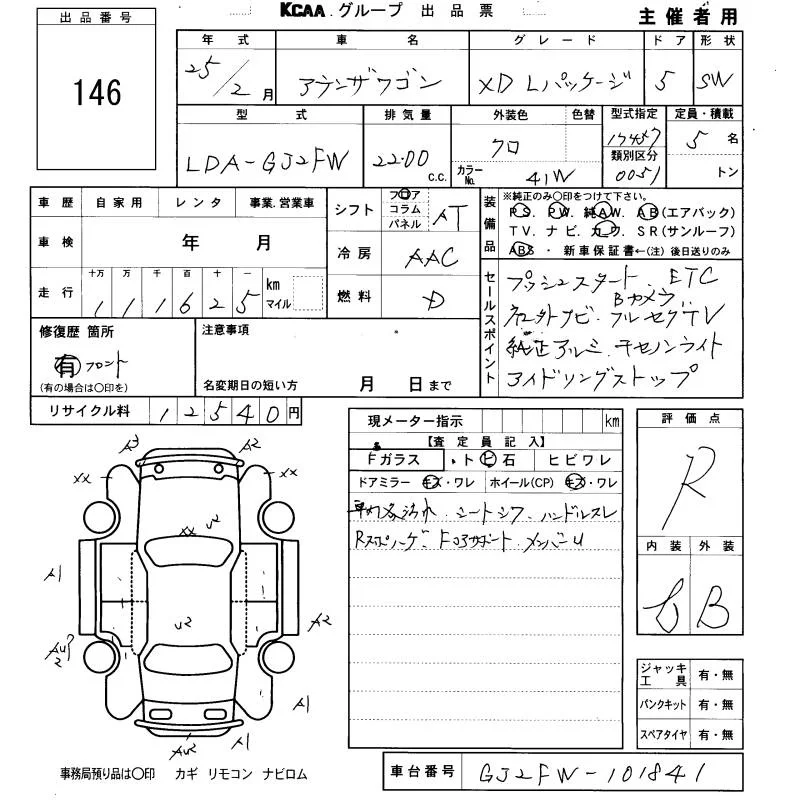 出品番号
146
KCAA.グループ 出品票
主催者用
年式 車名 グレード ドア 形状
25/2月 アテンザワゴン XD Lパッケージ 5 SW
型式 排気量 外装色 色替 型式指定 定員・積載
LDA-GJ2FW 2200 c.c. クロ カラーNo. 41W 17427 類別区分 0051 5名 トン
車歴 自家用 レンタ 事業.営業車
車検 年 月
走行 十万 万 千 百 十 一 km マイル
111625
シフト フロア コラム パネル AT
冷房 AAC
燃料 D
装備品 ※純正のみ〇印をつけて下さい。
PS. PW. 純AW. AB(エアバック)
TV. ナビ. カワ. SR(サンルーフ)
ABS ・ 新車保証書←(注)後日送りのみ
セールスポイント
プッシュスタート. ETC
Bカメラ.
社外ナビ. フルセグTV
純正アルミ. キセノンライト
アイドリングストップ
修復歴 箇所
有 フロント
(有の場合は〇印を)
注意事項
名変期日の短い方 月 日まで
リサイクル料 12540円
現メーター指示 km
【査定員記入】
Fガラス トビ石 ヒビワレ
ドアミラー キズ・ワレ ホイール(CP) キズ・ワレ
車内汚れ シートシワ. ハンドルスレ
Rスポイラーゲ. Fコアサポート. メンバーU
評価点
R
内装 外装
B
ジャッキ工具 有・無
パンクキット 有・無
スペアタイヤ 有・無
A3 A2
XX XX
XX U2
A1
U2
A2
A1
A1
AU2
事務局預り品は〇印 カギ リモコン ナビロム
車台番号 GJ2FW-101841